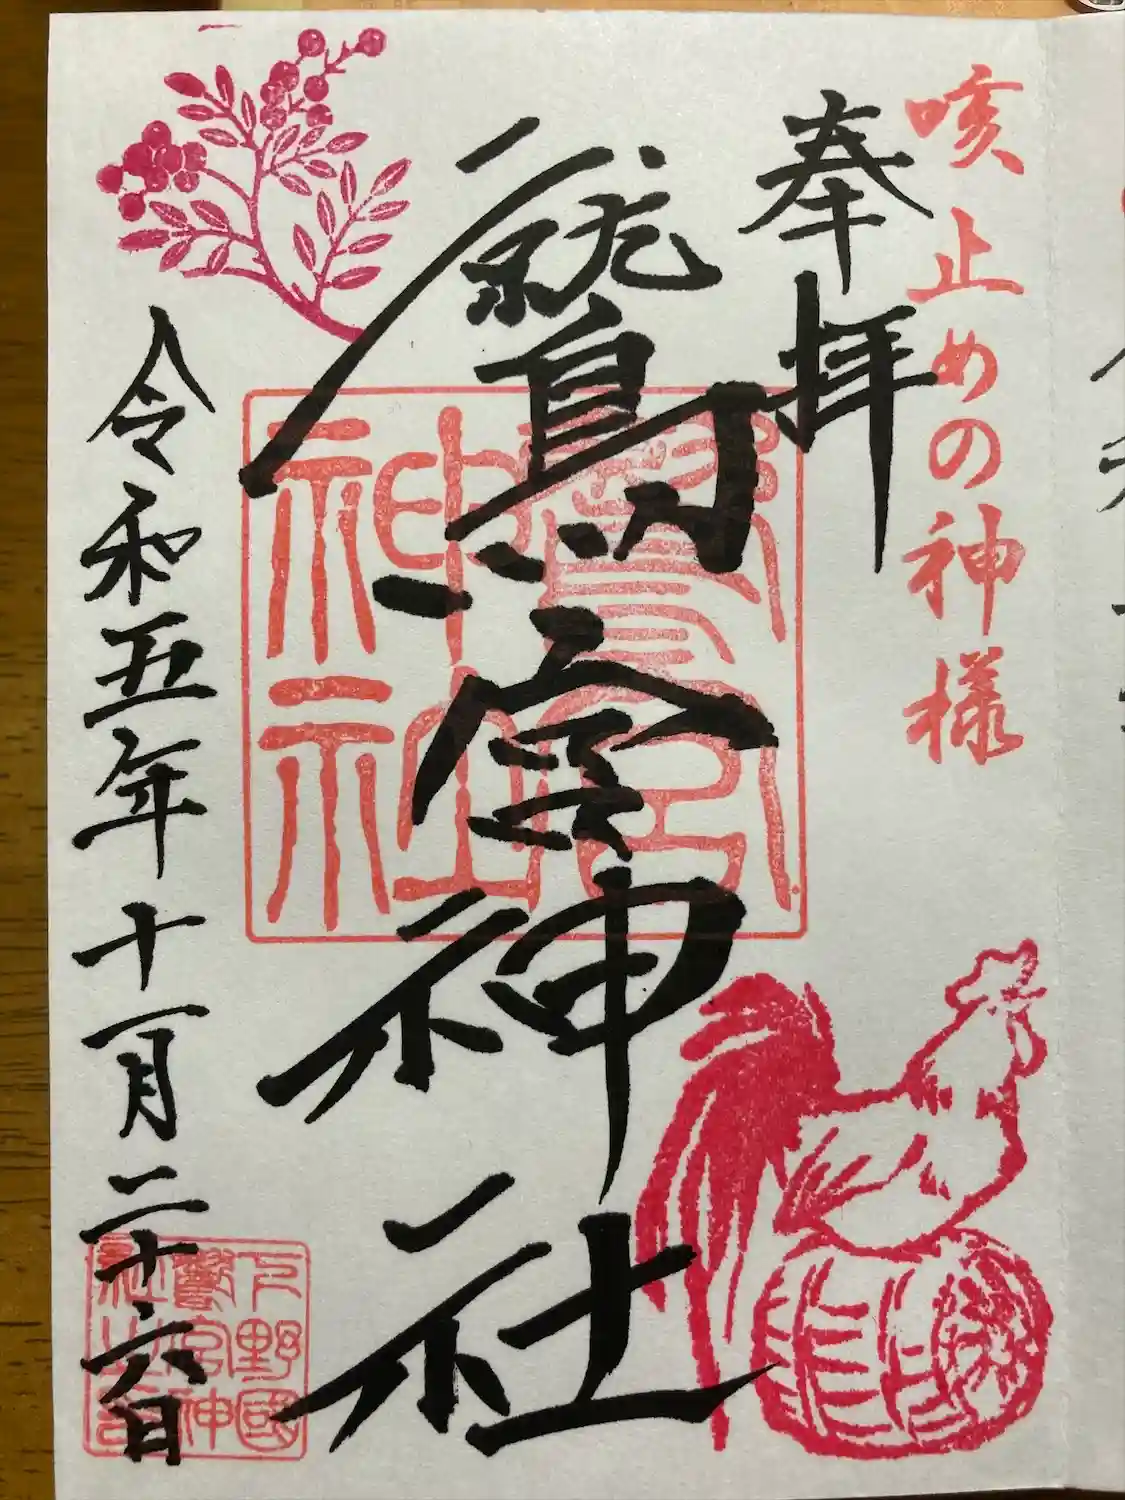 咳止めの神様
奉拝
鷲宮神社
鷲宮
神社
令和五年十一月二十六日
下野國
鷲宮神
社之印